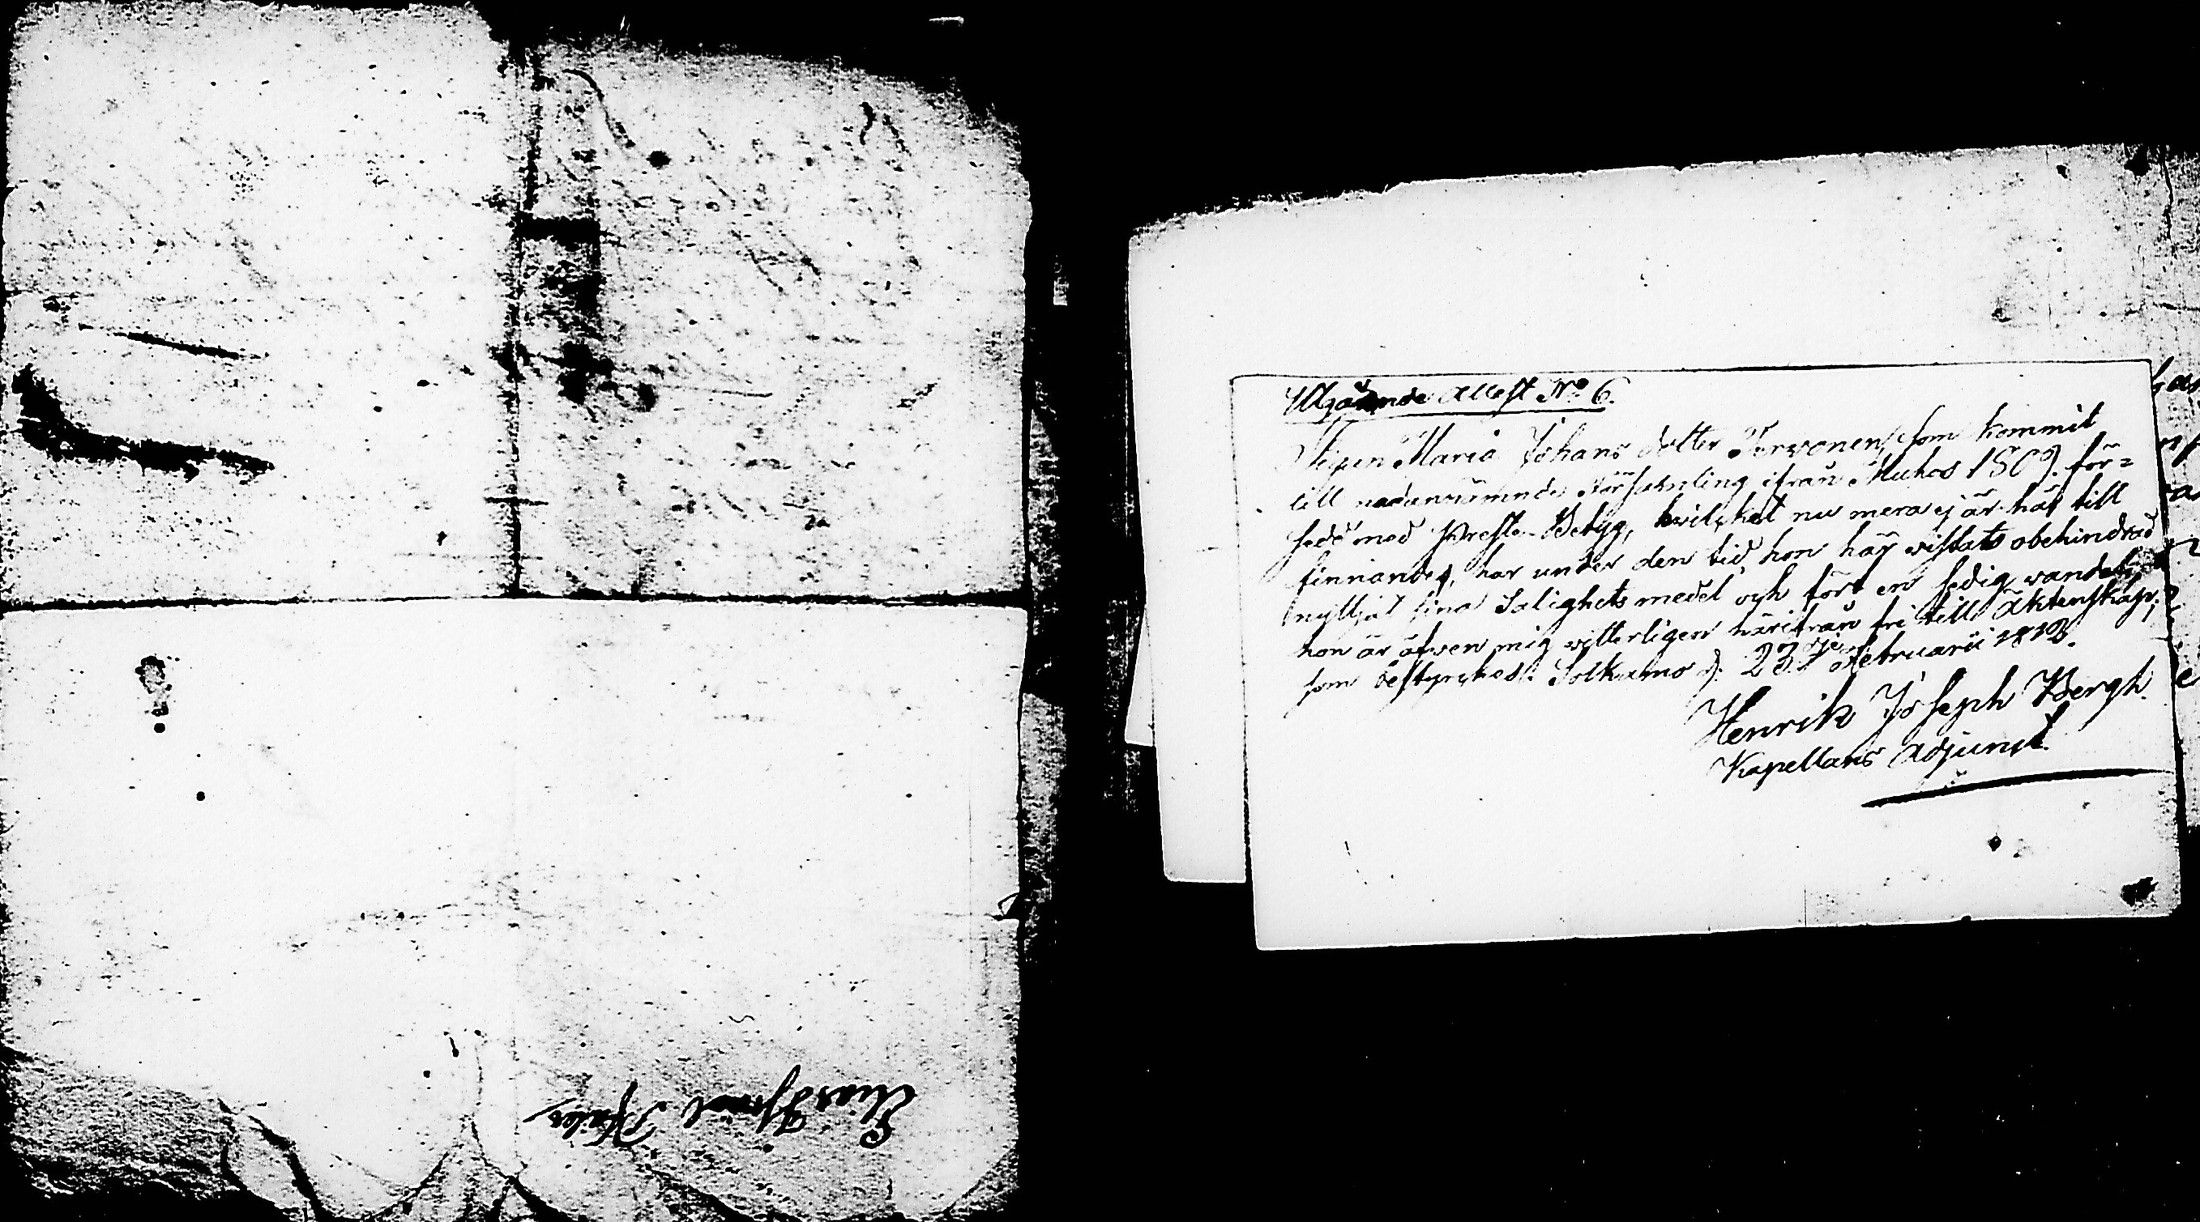 Utgående Attest No 6.
Pigan Maria Johans dotter Terwonen, som kommit
till nedannämnde Församling ifrån Muhos 1809. för=
sedd med Preste-Betyg, hwilcket nu mera ej är här till
finnandes, har under den tid hon här wistats obehindrad
nyttjat sina Salighets medel och fört en sedig wandel;
hon är äfwen mig witterligen härifrån fri till Äktenskap;
som bestyrckes. Sotkamo d. 23. Februarii 1812.
Henrik Joseph Bergh.
Kapellans Adjunct.
Elias